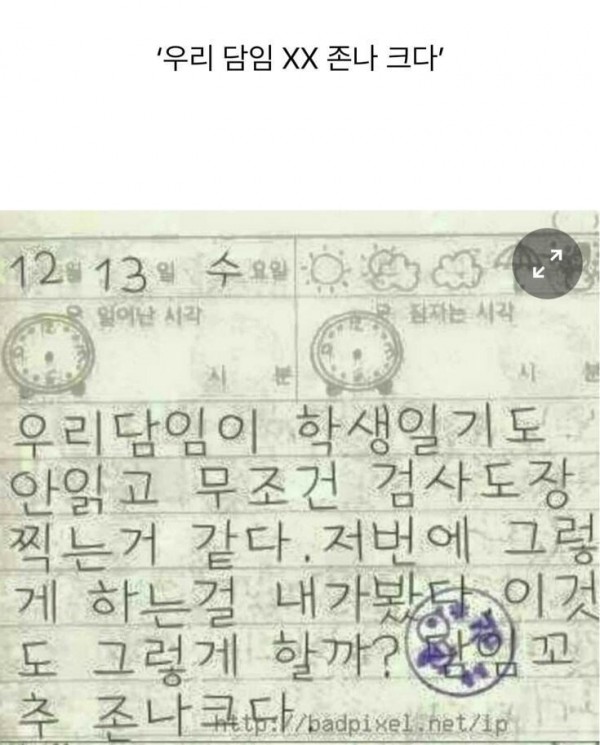 ‘우리 담임 XX 존나 크다’
12월 13일 수요일
일어난 시각 잠자는 시각
시 분 시 분
우리담임이 학생일기도
안읽고 무조건 검사도장
찍는거 같다. 저번에 그렇
게 하는걸 내가봤다 이것
도 그렇게 할까? 담임꼬
추 존나크다
http://badpixel.net/ip